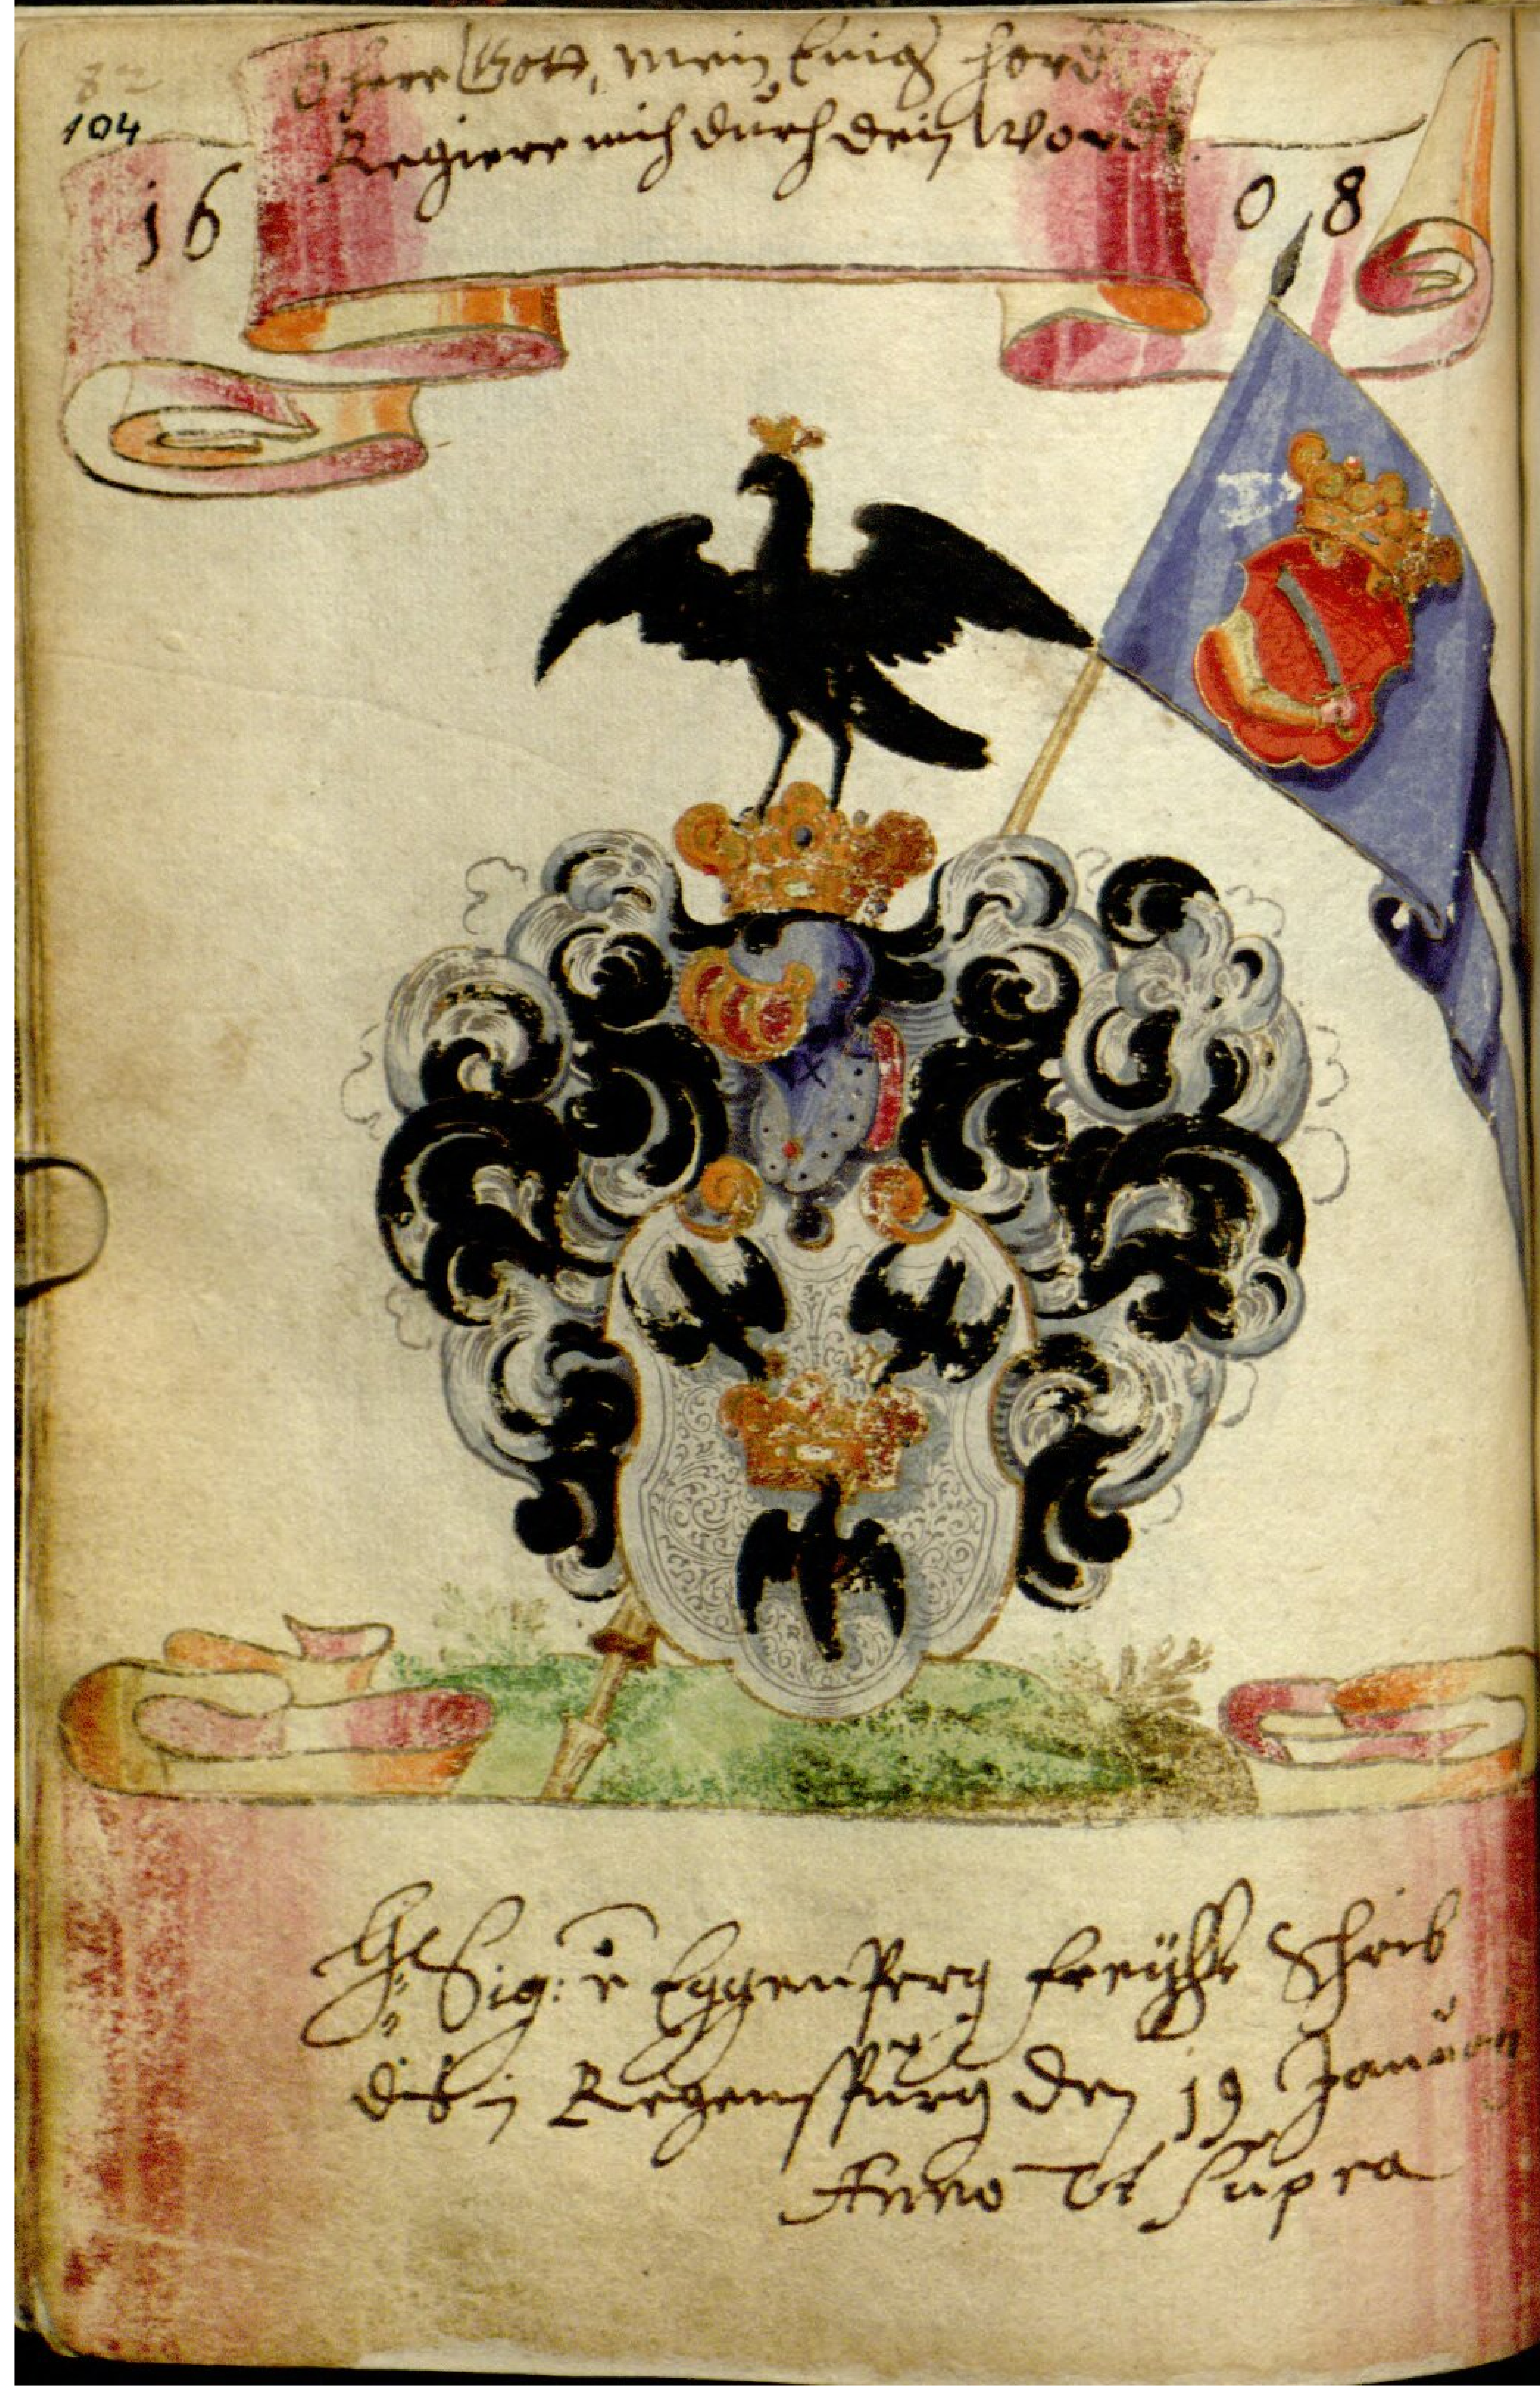 82
104
O herr Gott, mein Einig hord
Regiere mich durch dein Word
16 08
Sig: Eggenperg freyhr Schrib
dis in Regenspurg den 19 Januari
Anno Vt Supra